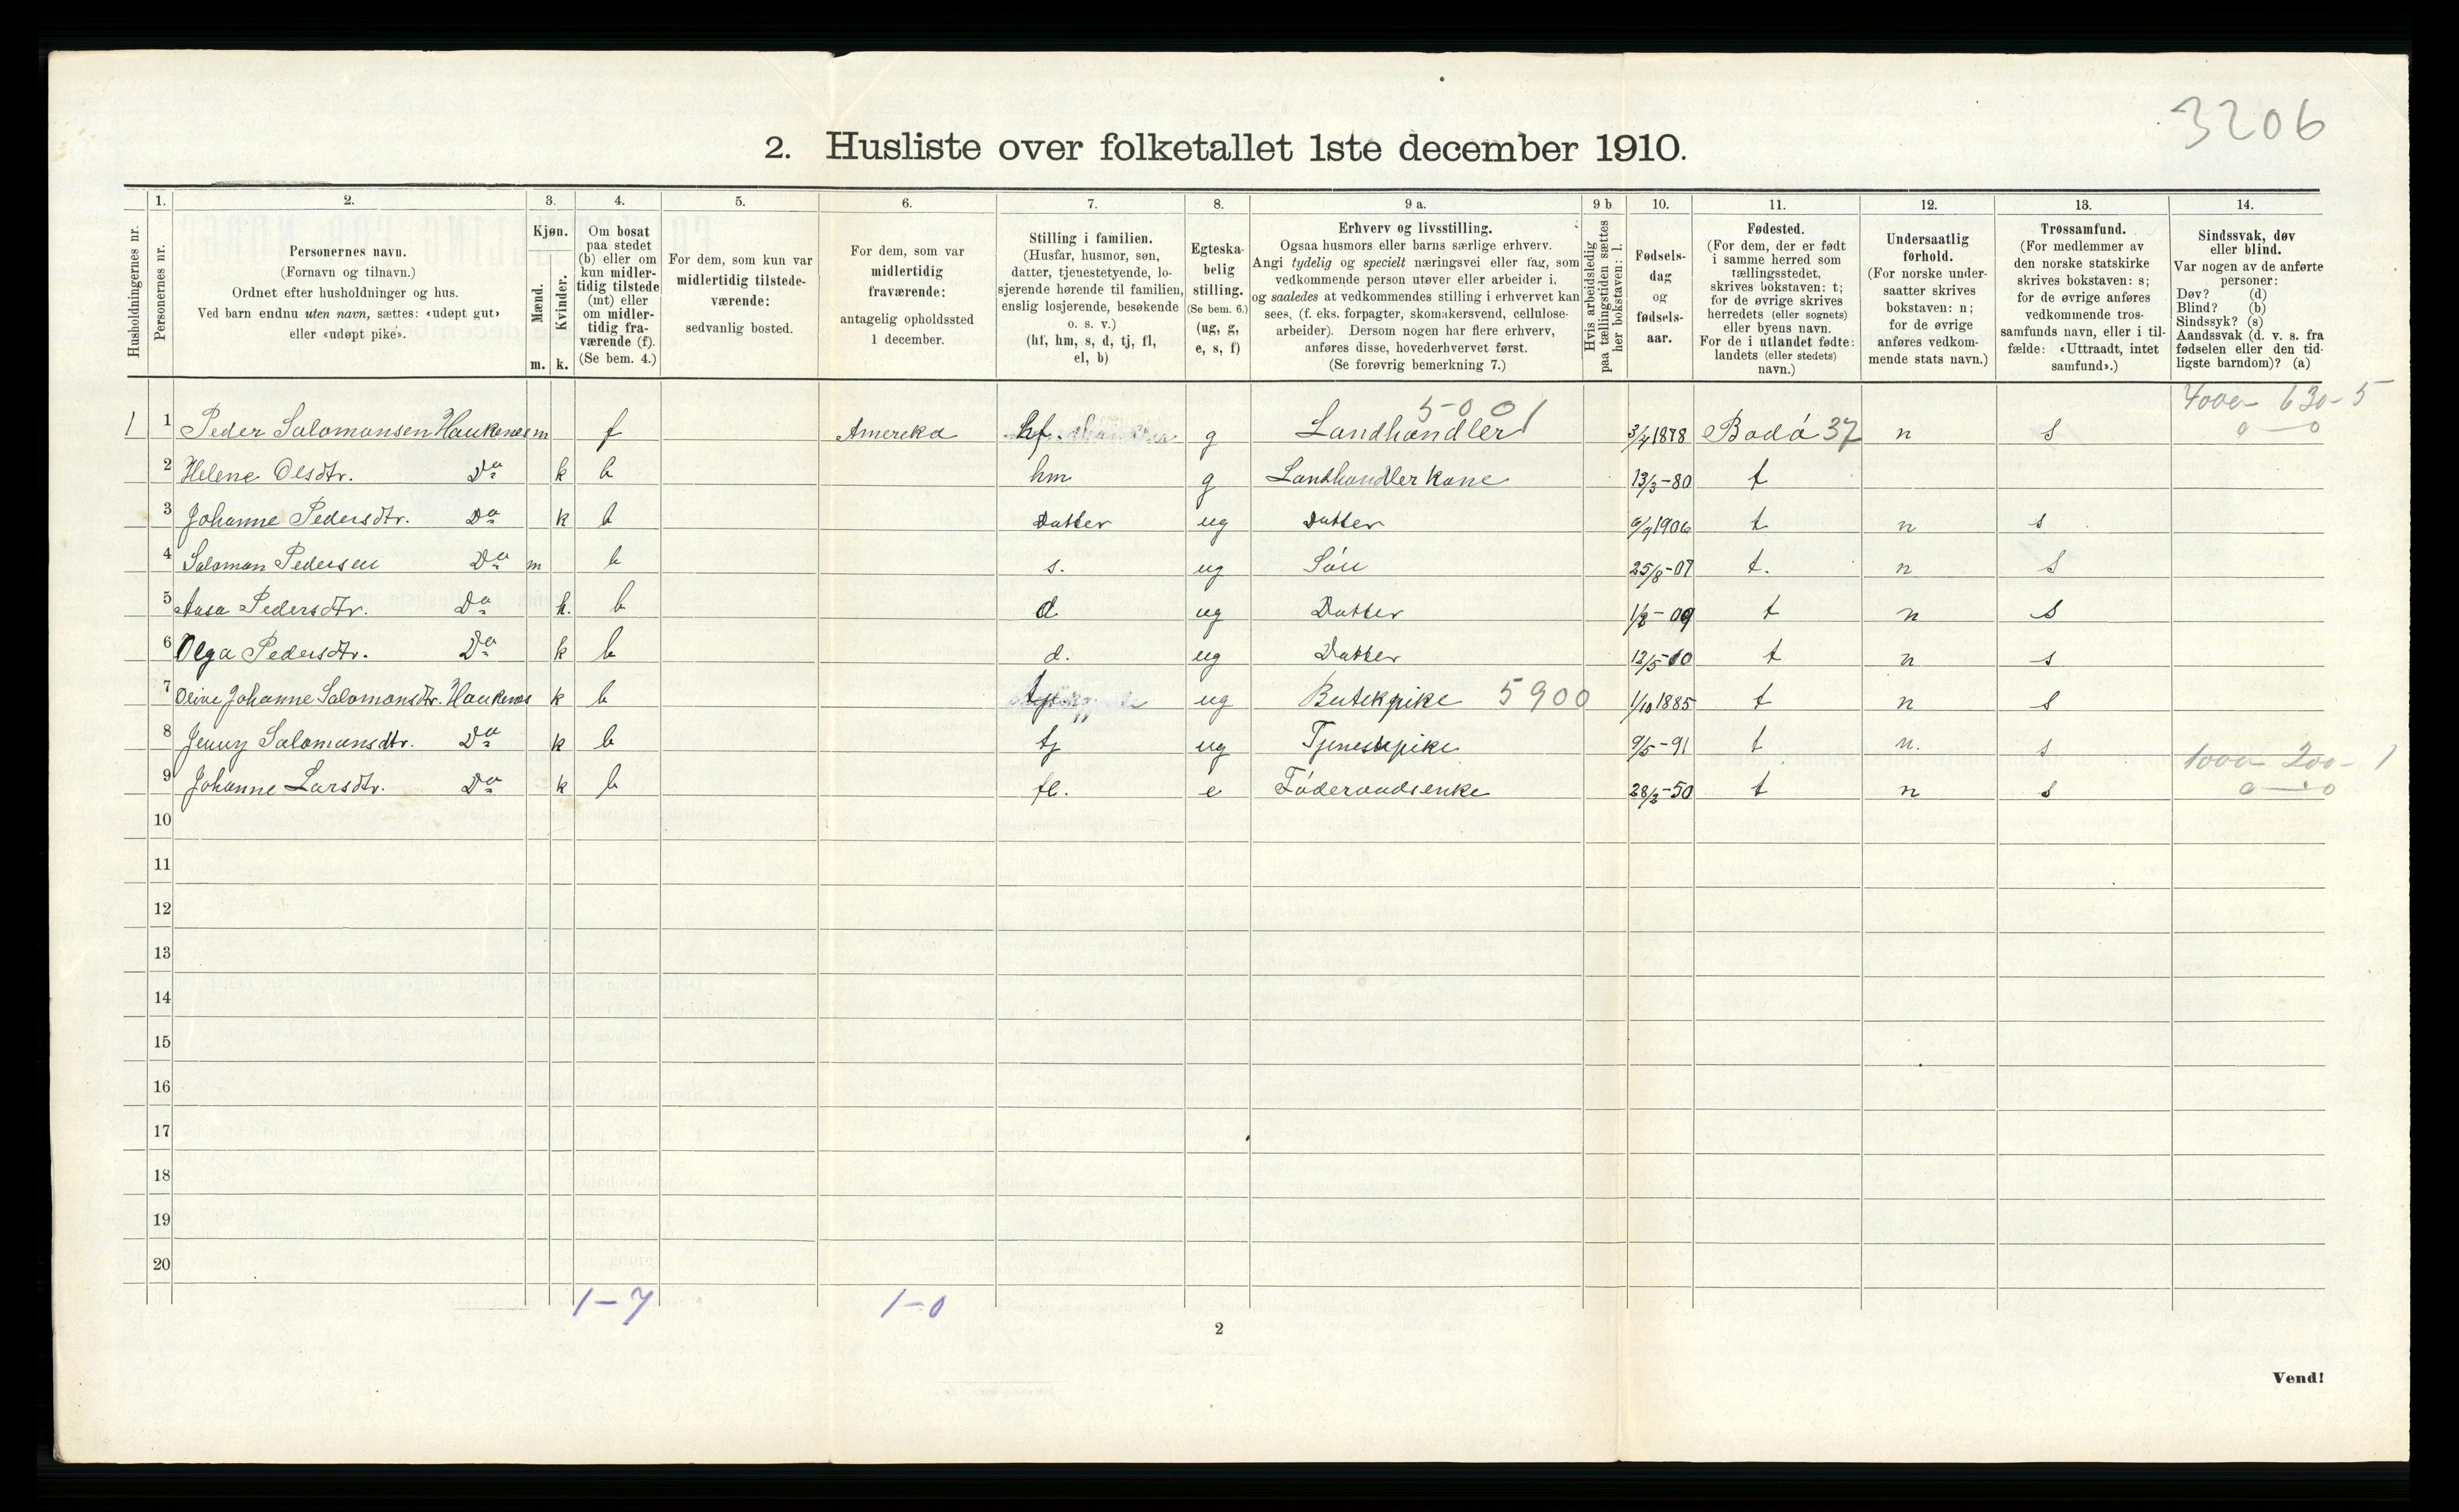 3206
2. Husliste over folketallet 1ste december 1910.
Husholdningernes nr.
1.
Personernes nr.
2.
Personernes navn.
(Fornavn og tilnavn.)
Ordnet efter husholdninger og hus.
Ved barn endnu uten navn, sættes: «udøpt gut»
eller «udøpt pike».
3.
Kjøn.
Mænd.
Kvinder.
m. k.
4.
Om bosat
paa stedet
(b) eller om
kun midler-
tidig tilstede
(mt) eller
om midler-
tidig fra-
værende (f).
(Se bem. 4.)
5.
For dem, som kun var
midlertidig tilstede-
værende:
sedvanlig bosted.
6.
For dem, som var
midlertidig
fraværende:
antagelig opholdssted
1 december.
7.
Stilling i familien.
(Husfar, husmor, søn,
datter, tjenestetyende, lo-
sjerende hørende til familien,
enslig losjerende, besøkende
o. s. v.)
(hf, hm, s, d, tj, fl,
el, b)
8.
Egteska-
belig
stilling.
(Se bem. 6.)
(ug, g,
e, s, f)
9 a.
Erhverv og livsstilling.
Ogsaa husmors eller barns særlige erhverv.
Angi tydelig og specielt næringsvei eller fag, som
vedkommende person utøver eller arbeider i,
og saaledes at vedkommendes stilling i erhvervet kan
sees, (f. eks. forpagter, skomakersvend, cellulose-
arbeider). Dersom nogen har flere erhverv,
anføres disse, hovederhvervet først.
(Se forøvrig bemerkning 7.)
9 b
Hvis arbeidsledig
paa tællingstiden sættes
her bokstaven: l.
10.
Fødsels-
dag
og
fødsels-
aar.
11.
Fødested.
(For dem, der er født
i samme herred som
tællingsstedet,
skrives bokstaven: t;
for de øvrige skrives
herredets (eller sognets)
eller byens navn.
For de i utlandet fødte:
landets (eller stedets)
navn.)
12.
Undersaatlig
forhold.
(For norske under-
saatter skrives
bokstaven: n;
for de øvrige
anføres vedkom-
mende stats navn.)
13.
Trossamfund.
(For medlemmer av
den norske statskirke
skrives bokstaven: s;
for de øvrige anføres
vedkommende tros-
samfunds navn, eller i til-
fælde: «Uttraadt, intet
samfund».)
14.
Sindssvak, døv
eller blind.
Var nogen av de anførte
personer:
Døv? (d)
Blind? (b)
Sindssyk? (s)
Aandssvak (d. v. s. fra
fødselen eller den tid-
ligste barndom)? (a)
5001 4000 - 630 - 5
1 1 Peder Salomonsen Haukenæs m f Amereka hf. g Landhandler 3/4 1878 Bodö 37 n s 0 — 0
2 Helene Olsdtr. Do k b hm g Landhandlerkone 13/3-80 t
3 Johanne Pedersdtr. Do k b Datter ug Datter 6/9 1906 t n s
4 Salomon Pedersen Do m b s. ug Sön 25/8-07 t. n s
5 Aasa Pedersdtr. Do k. b d ug Datter 1/2-09 t n s
6 Olga Pedersdtr. Do k b d. ug Datter 12/5-10 t n s
7 Oline Johanne Salomonsdtr. Haukenæs k b tj ug Butekpike 5900 1/10 1885 t n s
8 Jenny Salomonsdtr. Do k b tj ug Tjenestepike 9/5-91 t n. s 1000 - 200 - 1
9 Johanne Larsdtr. Do k b fl. e Föderaadsenke 28/2-50 t n s 0 — 0
10
11
12
13
14
15
16
17
18
19
20
1-7 1-0
2
Vend!